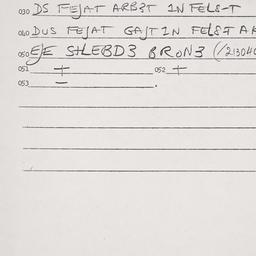 030 DS FEJAT ARBST IN FELS-T
040 DUS FEJAT GAST IN FELST AK
050 EJE SHLEBD3 BRON3
051 + 052 +
053 –